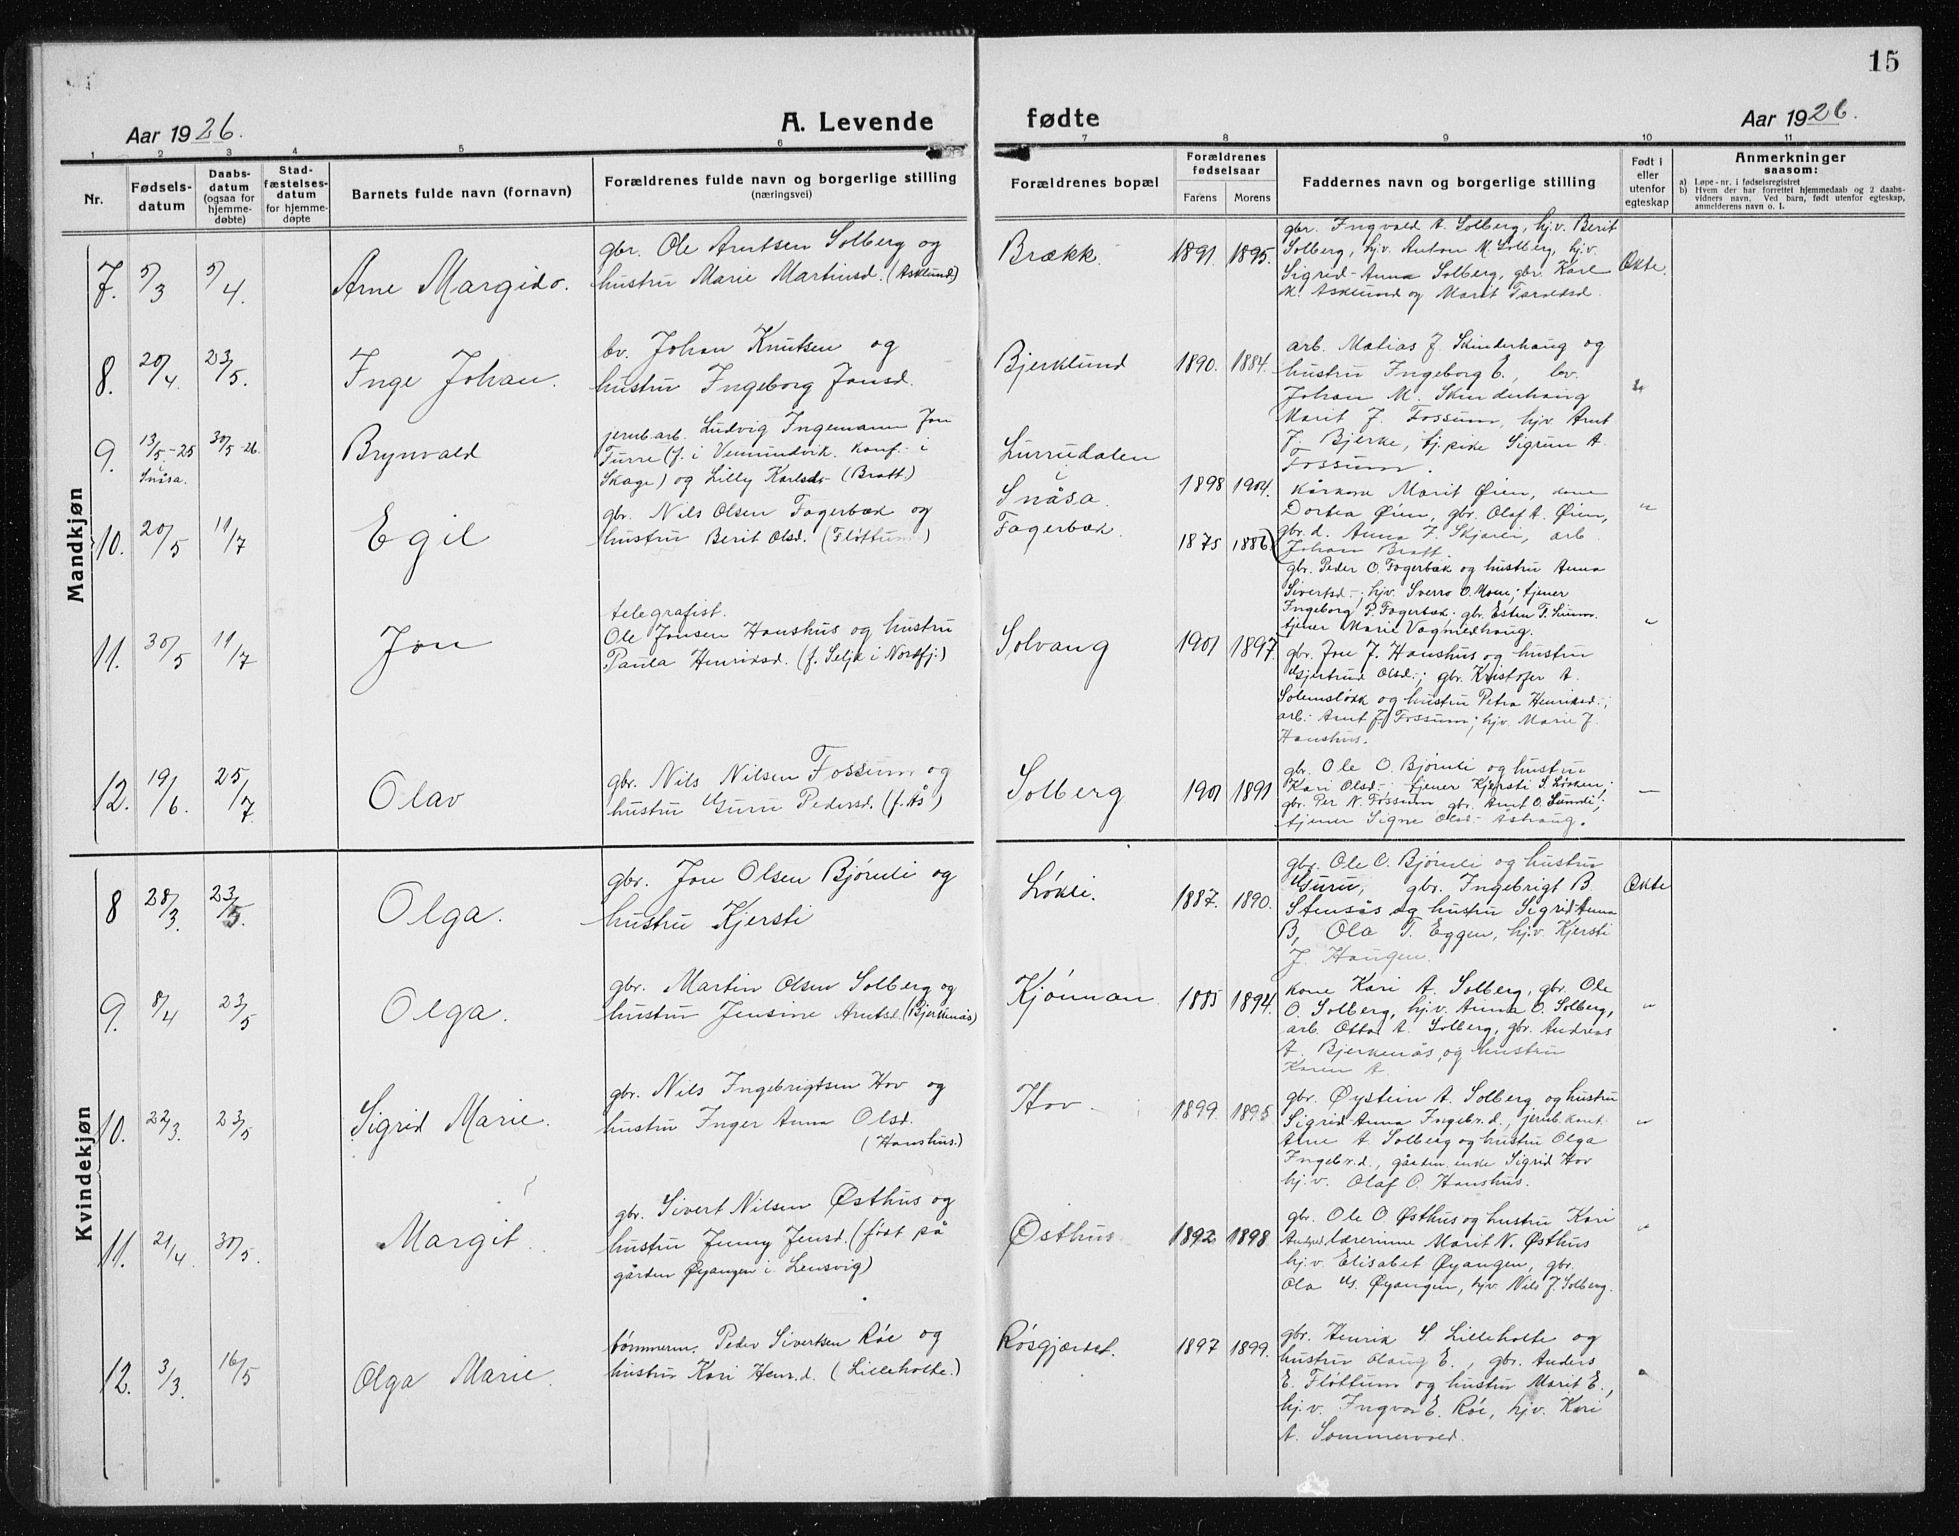 15
Aar 1926. A. Levende fødte Aar 1926.
1 2 3 4 5 6 7 8 9 10 11
Nr.
Fødsels-
datum
Daabs-
datum
(ogsaa for
hjemme-
døbte)
Stad-
fæstelses-
datum
for hjemme-
døpte
Barnets fulde navn (fornavn)
Forældrenes fulde navn og borgerlige stilling
(næringsvei)
Forældrenes bopæl
Forældrenes
fødselsaar
Farens Morens
Faddernes navn og borgerlige stilling
Født i
eller
utenfor
egteskap
Anmerkninger
saasom:
a) Løpe-nr. i fødselsregistret
b) Hvem der har forrettet hjemmedaab og 2 daabs-
vidners navn. Ved barn, født utenfor egteskap,
anmelderens navn o. l.
Mandkjøn
7. 5/3 5/4 Arne Margido.
gbr. Ole Arntsen Solberg og
hustru Marie Martinsd. (Asklund)
Brækk. 1891. 1895.
gbr. Ingvald A. Solberg, hj.v. Berit
Solberg, hj.v. Anton M. Solberg, hj.v.
Sigrid-Anna Solberg, gbr. Karl
M. Asklund og Marit Taraldsd.
Ekte.
8. 20/4. 23/5. Inge Johan.
bv. Johan Knutsen og
hustru Ingeborg Jonsd.
Bjerklund 1890. 1884.
arb. Matias J. Skinderhaug og
hustru Ingeborg E., bv.
Johan M. Skinderhaug
Marit J. Fossum, hjv. Arnt
J. Bjerke, tj.pike Sigrun A.
Fossum.
9. 13/5-25 i Snåsa. 30/5-26 Brynvald
jernb.arb. Ludvig Ingemann Jon
Turre (f. i Vemundvik. konf. i
Skage) og Lilly Karlsd- (Bratt)
Lurrudalen
i
Snåsa. 1898 1904.
kårkone Marit Øien, kone
Dortea Øien, gbr. Olaf A. Øien,
gbr.d. Anna J. Skjærli, arb.
Johan Bratt.
"
10. 20/5 11/7 Egil
gbr. Nils Olsen Fagerbæk og
hustru Berit Olsd. (Fløttum)
Fagerbæk. 1875 1886
gbr. Peder O. Fagerbæk og hustru Anna
Sivertsd-; hjv. Sverro O. Moen; tjener
Ingeborg P. Fagerbæk; gbr. Esten T.
tjener Marie Vagnildhaug.
"
11. 30/5 11/7 Jon
telegrafist.
Ole Jonsen Hanshus og hustru
Paula Henriksd. (f. Selje i Nordfj.)
Solvang 1901 1897
gbr. Jon J. Hanshus og hustru
Gjertrud Olsd-; gbr. Kristofer A.
Solemsløkk og hustru Petra Henriksd-;
arb. Arnt J. Fossum; hjv. Marie J.
Hanshus.
12. 19/6. 25/7. Olav
gbr. Nils Nilsen Fossum og
hustru Guru Pedersd. (f. Ås)
Solberg 1901 1891
gbr. Ole O. Bjørnli og hustru
Kari Olsd-; tjener Kjersti S. Løkken;
gbr. Per N. Fossum gbr. Arnt O. Lundli;
tjener Signe Olsd- Åshaug.
—
Kvindekjøn
8 28/3. 23/5. Olga.
gbr. Jon Olsen Bjørnli og
hustru Kjersti
Løkli. 1887. 1890.
gbr. Ole O. Bjørnli og hustru
Guru, gbr. Ingebrigt B.
Stensås og hustru Sigrid Anna
B, Ola T. Eggen, hj.v. Kjersti
J. Haugen.
Ekte
9. 8/4 23/5 Olga.
gbr. Martin Olsen Solberg og
hustru Jensine Arntsd. (Bjerknås)
Kjønman 1885 1894.
kone Kari A. Solberg, gbr. Ole
O. Solberg, hj.v. Anna O. Solberg,
arb. Ottar A. Solberg, gbr. Andreas
A. Bjerkenås, og hustru
Karen A.
"
10. 22/3. 23/5 Sigrid Marie.
gbr. Nils Ingebrigtsen Hov og
hustru Inger Anna Olsd.
(Hanshus.)
Hov 1899. 1895
gbr. Øystein A. Solberg og hustru
Sigrid Anna Ingebr.d., jernb.kont.
Arne A. Solberg og hustru Olga
Ingebr.d., gården. enke Sigrid Hov
hj.v. Olaf O. Hanshus.
"
11. 21/4. 30/5. Margit.
gbr. Sivert Nilsen Østhus og
hustru Jenny Jensd. (født på
gården Øyangen i Lensvig)
Østhus 1892 1898
gbr. Ole O. Østhus og hustru Kari
lærerinne Marit N. Østhus
hj.v. Elisabet Øyangen, gbr.
Ola G. Øyangen, hjv. Nils J. Solberg.
"
12. 3/3. 16/5 Olga Marie.
tømmerm. Peder Sivertsen Røe og
hustru Kari Henr.d. (Lilleholte.)
Røsgjærdet. 1897 1899.
gbr. Henrik S. Lilleholte og
hustru Olaug E., gbr. Anders
E. Fløttum og hustru Marit E.,
hj.v. Ingvar E. Røe, hjv. Kari
A. Sommervold.
"